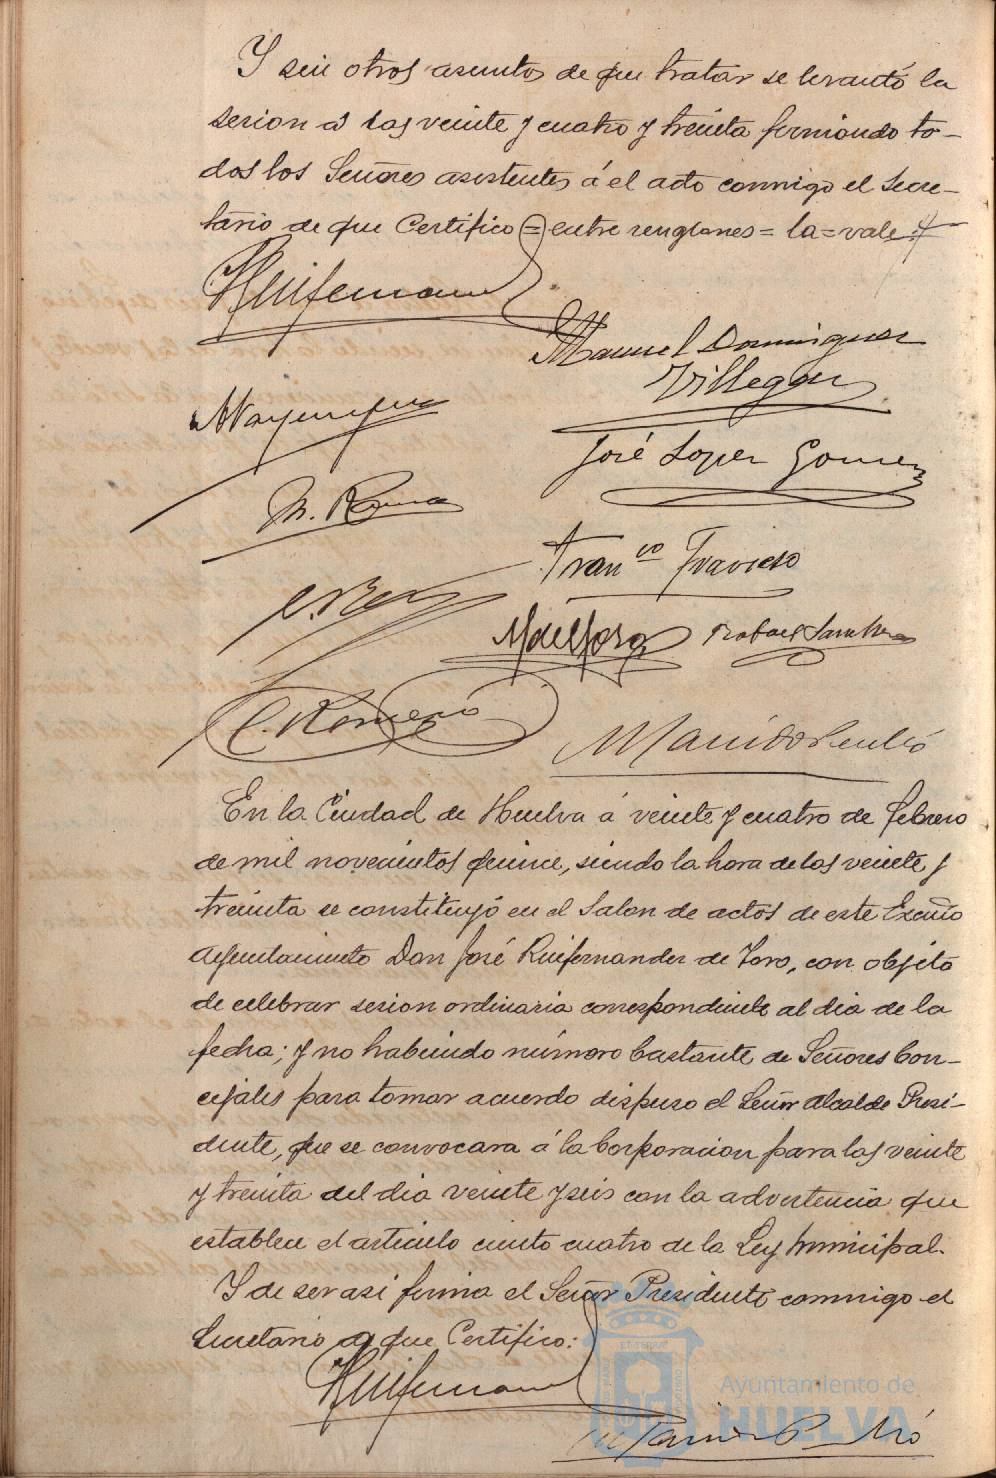 Y sin otros asuntos de que tratar se levantó la
sesion á las veinte y cuatro y treinta firmando to-
dos los Señores asistentes á el acto conmigo el Secre-
tario de que Certifico = entre renglones = la = vale.
Manuel Dominguez
Villegas
José Lopez Gomez
M. Roma
Fran co Travieso
Rafael Sanchez
C. Romero
En la Ciudad de Huelva á veinte y cuatro de febrero
de mil novecientos quince, siendo la hora de las veinte y
treinta se constituyó en el Salon de actos de este Excmo
Ayuntamiento Don José Ruifernandez de Toro, con objeto
de celebrar sesion ordinaria correspondiente al dia de la
fecha; y no habiendo número bastante de Señores Con-
cejales para tomar acuerdo dispuso el Señor Alcalde Presi-
dente, que se convocara á la Corporacion para las veinte
y treinta del dia veinte y seis con la advertencia que
establece el articulo ciento cuatro de la Ley Municipal.
Y de ser asi firma el Señor Presidente conmigo el
Secretario que Certifico:
Ayuntamiento de
HUELVA